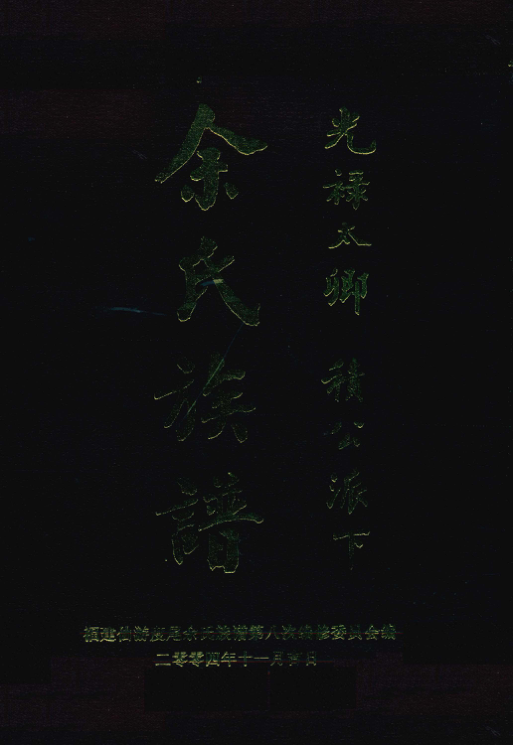 光禄太卿 積公派下
余氏族譜
福建仙游度尾余氏族譜第八次编修委员会编
二零零四年十一月吉日